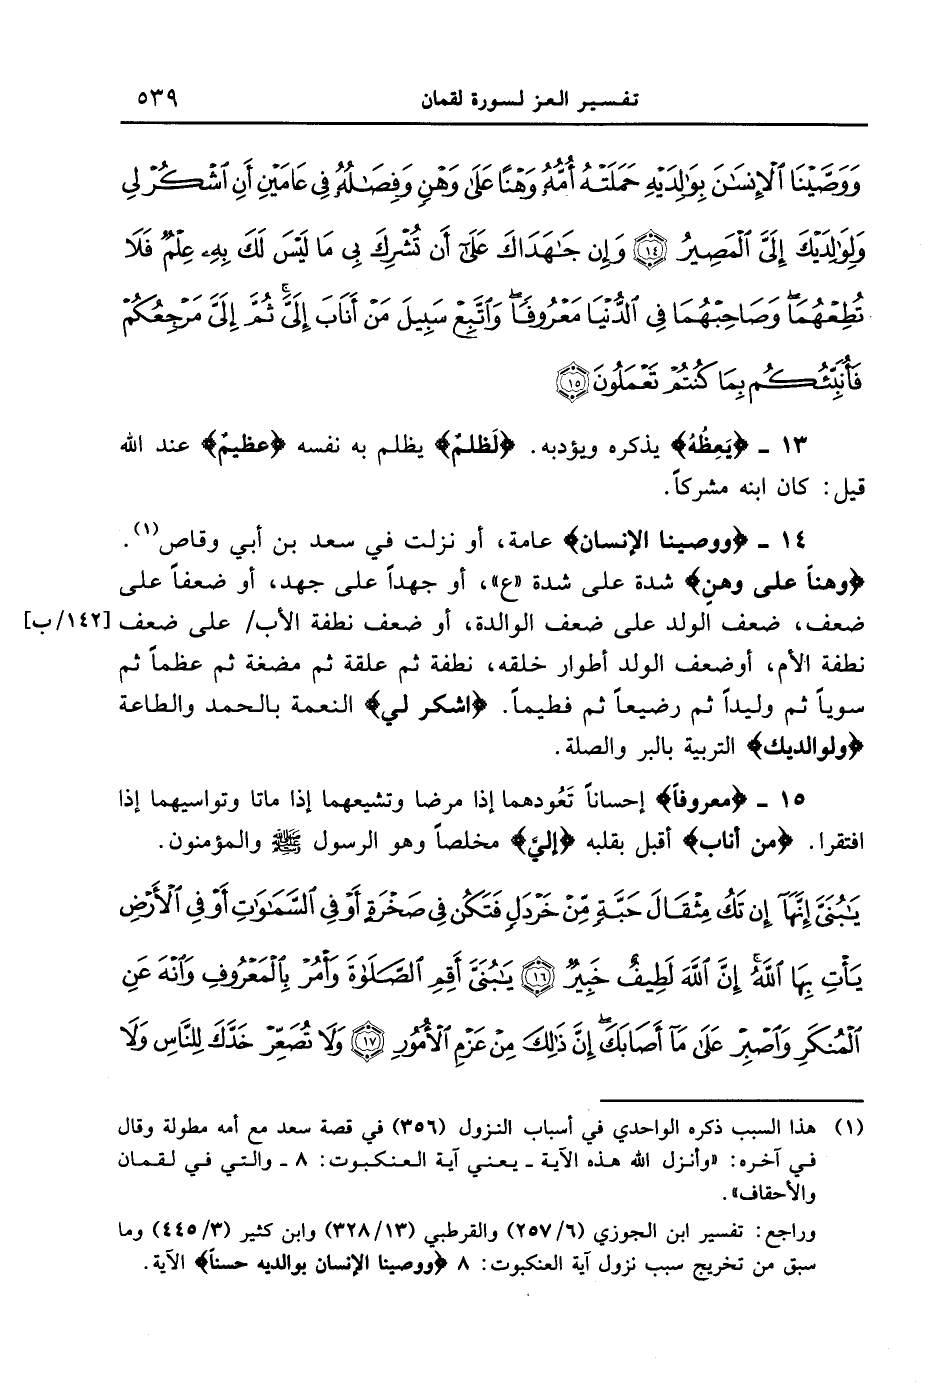 تفسير العز لسورة لقمان ٥٣٩
وَوَصَّيْنَا ٱلْإِنسَٰنَ بِوَٰلِدَيْهِ حَمَلَتْهُ أُمُّهُۥ وَهْنًا عَلَىٰ وَهْنٍ وَفِصَٰلُهُۥ فِى عَامَيْنِ أَنِ ٱشْكُرْ لِى
وَلِوَٰلِدَيْكَ إِلَىَّ ٱلْمَصِيرُ ﴿١٤﴾ وَإِن جَٰهَدَاكَ عَلَىٰٓ أَن تُشْرِكَ بِى مَا لَيْسَ لَكَ بِهِۦ عِلْمٌ فَلَا
تُطِعْهُمَا ۖ وَصَاحِبْهُمَا فِى ٱلدُّنْيَا مَعْرُوفًا ۖ وَٱتَّبِعْ سَبِيلَ مَنْ أَنَابَ إِلَىَّ ۚ ثُمَّ إِلَىَّ مَرْجِعُكُمْ
فَأُنَبِّئُكُم بِمَا كُنتُمْ تَعْمَلُونَ ﴿١٥﴾
١٣ ـ ﴿يَعِظُهُ﴾ يذكره ويؤدبه. ﴿لَظلمٌ﴾ يظلم به نفسه ﴿عظيمٌ﴾ عند الله
قيل: كان ابنه مشركاً.
١٤ ـ ﴿ووصينا الإنسان﴾ عامة، أو نزلت في سعد بن أبي وقاص(١).
﴿وهناً على وهنٍ﴾ شدة على شدة «ع»، أو جهداً على جهد، أو ضعفاً على
ضعف، ضعف الولد على ضعف الوالدة، أو ضعف نطفة الأب/ على ضعف [١٤٢/ب]
نطفة الأم، أوضعف الولد أطوار خلقه، نطفة ثم علقة ثم مضغة ثم عظماً ثم
سوياً ثم وليداً ثم رضيعاً ثم فطيماً. ﴿اشكر لي﴾ النعمة بالحمد والطاعة
﴿ولوالديك﴾ التربية بالبر والصلة.
١٥ ـ ﴿معروفاً﴾ إحساناً تَعُودهما إذا مرضا وتشيعهما إذا ماتا وتواسيهما إذا
افتقرا. ﴿من أناب﴾ أقبل بقلبه ﴿إليَّ﴾ مخلصاً وهو الرسول ﷺ والمؤمنون.
يَٰبُنَىَّ إِنَّهَآ إِن تَكُ مِثْقَالَ حَبَّةٍ مِّنْ خَرْدَلٍ فَتَكُن فِى صَخْرَةٍ أَوْ فِى ٱلسَّمَٰوَٰتِ أَوْ فِى ٱلْأَرْضِ
يَأْتِ بِهَا ٱللَّهُ ۚ إِنَّ ٱللَّهَ لَطِيفٌ خَبِيرٌ ﴿١٦﴾ يَٰبُنَىَّ أَقِمِ ٱلصَّلَوٰةَ وَأْمُرْ بِٱلْمَعْرُوفِ وَٱنْهَ عَنِ
ٱلْمُنكَرِ وَٱصْبِرْ عَلَىٰ مَآ أَصَابَكَ ۖ إِنَّ ذَٰلِكَ مِنْ عَزْمِ ٱلْأُمُورِ ﴿١٧﴾ وَلَا تُصَعِّرْ خَدَّكَ لِلنَّاسِ وَلَا
(١) هذا السبب ذكره الواحدي في أسباب النزول (٣٥٦) في قصة سعد مع أمه مطولة وقال
في آخره: «وأنزل الله هذه الآية ـ يعني آية العنكبوت: ٨ ـ والتي في لقمان
والأحقاف».
وراجع: تفسير ابن الجوزي (٢٥٧/٦) والقرطبي (٣٢٨/١٣) وابن كثير (٤٤٥/٣) وما
سبق من تخريج سبب نزول آية العنكبوت: ٨ ﴿ووصينا الإنسان بوالديه حسناً﴾ الآية.